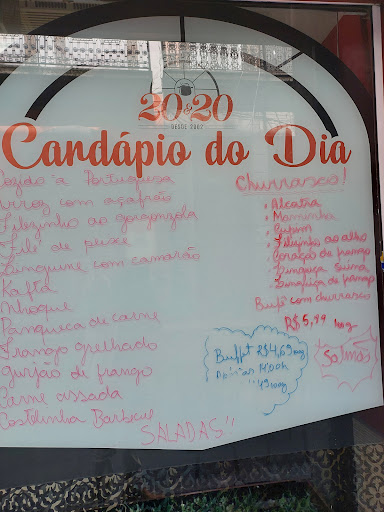 20&20
DESDE 2002
Cardápio do Dia
Cozido à Portuguesa
Arroz com açafrão
Filezinho ao gorgonzola
Filé de peixe
Linguine com camarão
Kafta
Nhoque
Panqueca de carne
Frango grelhado
Gurjão de frango
Carne assada
Costelinha Barbecue
SALADAS!!
Churrasco!
• Alcatra
• Maminha
• Cupim
• Filezinho ao alho
• Coração de frango
• Linguiça suína
• Linguiça de frango
Bufê com churrasco
R$5,99 100g
Buffet R$4,69 100g
Após às 14:00h